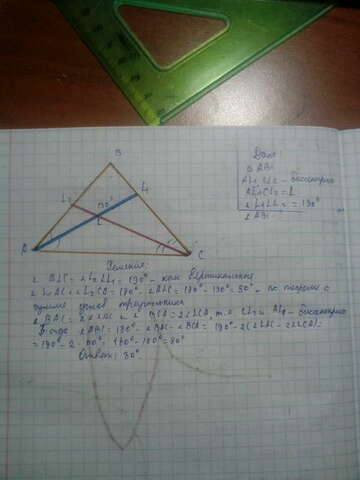 B
L₂
L₁
130°
L
A
C
Дано:
Δ ABC
AL₁ CL₂ - биссектрисы
AL₁∩CL₂ = L
∠L₁LL₂ = 130°
∠ABC
Решение:
∠ALC = ∠L₂LL₁ = 130° - как вертикальные
∠LAC + ∠LCA = 180° - ∠ALC = 180° - 130° = 50° - по теореме о
сумме углов треугольника
∠BAC = 2∠LAC и ∠BCA = 2∠LCA, т.к. CL₂ и AL₁ - биссектрисы
∠ABC = 180° - ∠BAC - ∠BCA =
= 180° - 2 · 50° = 180° - 100° = 80°
Ответ: 80°